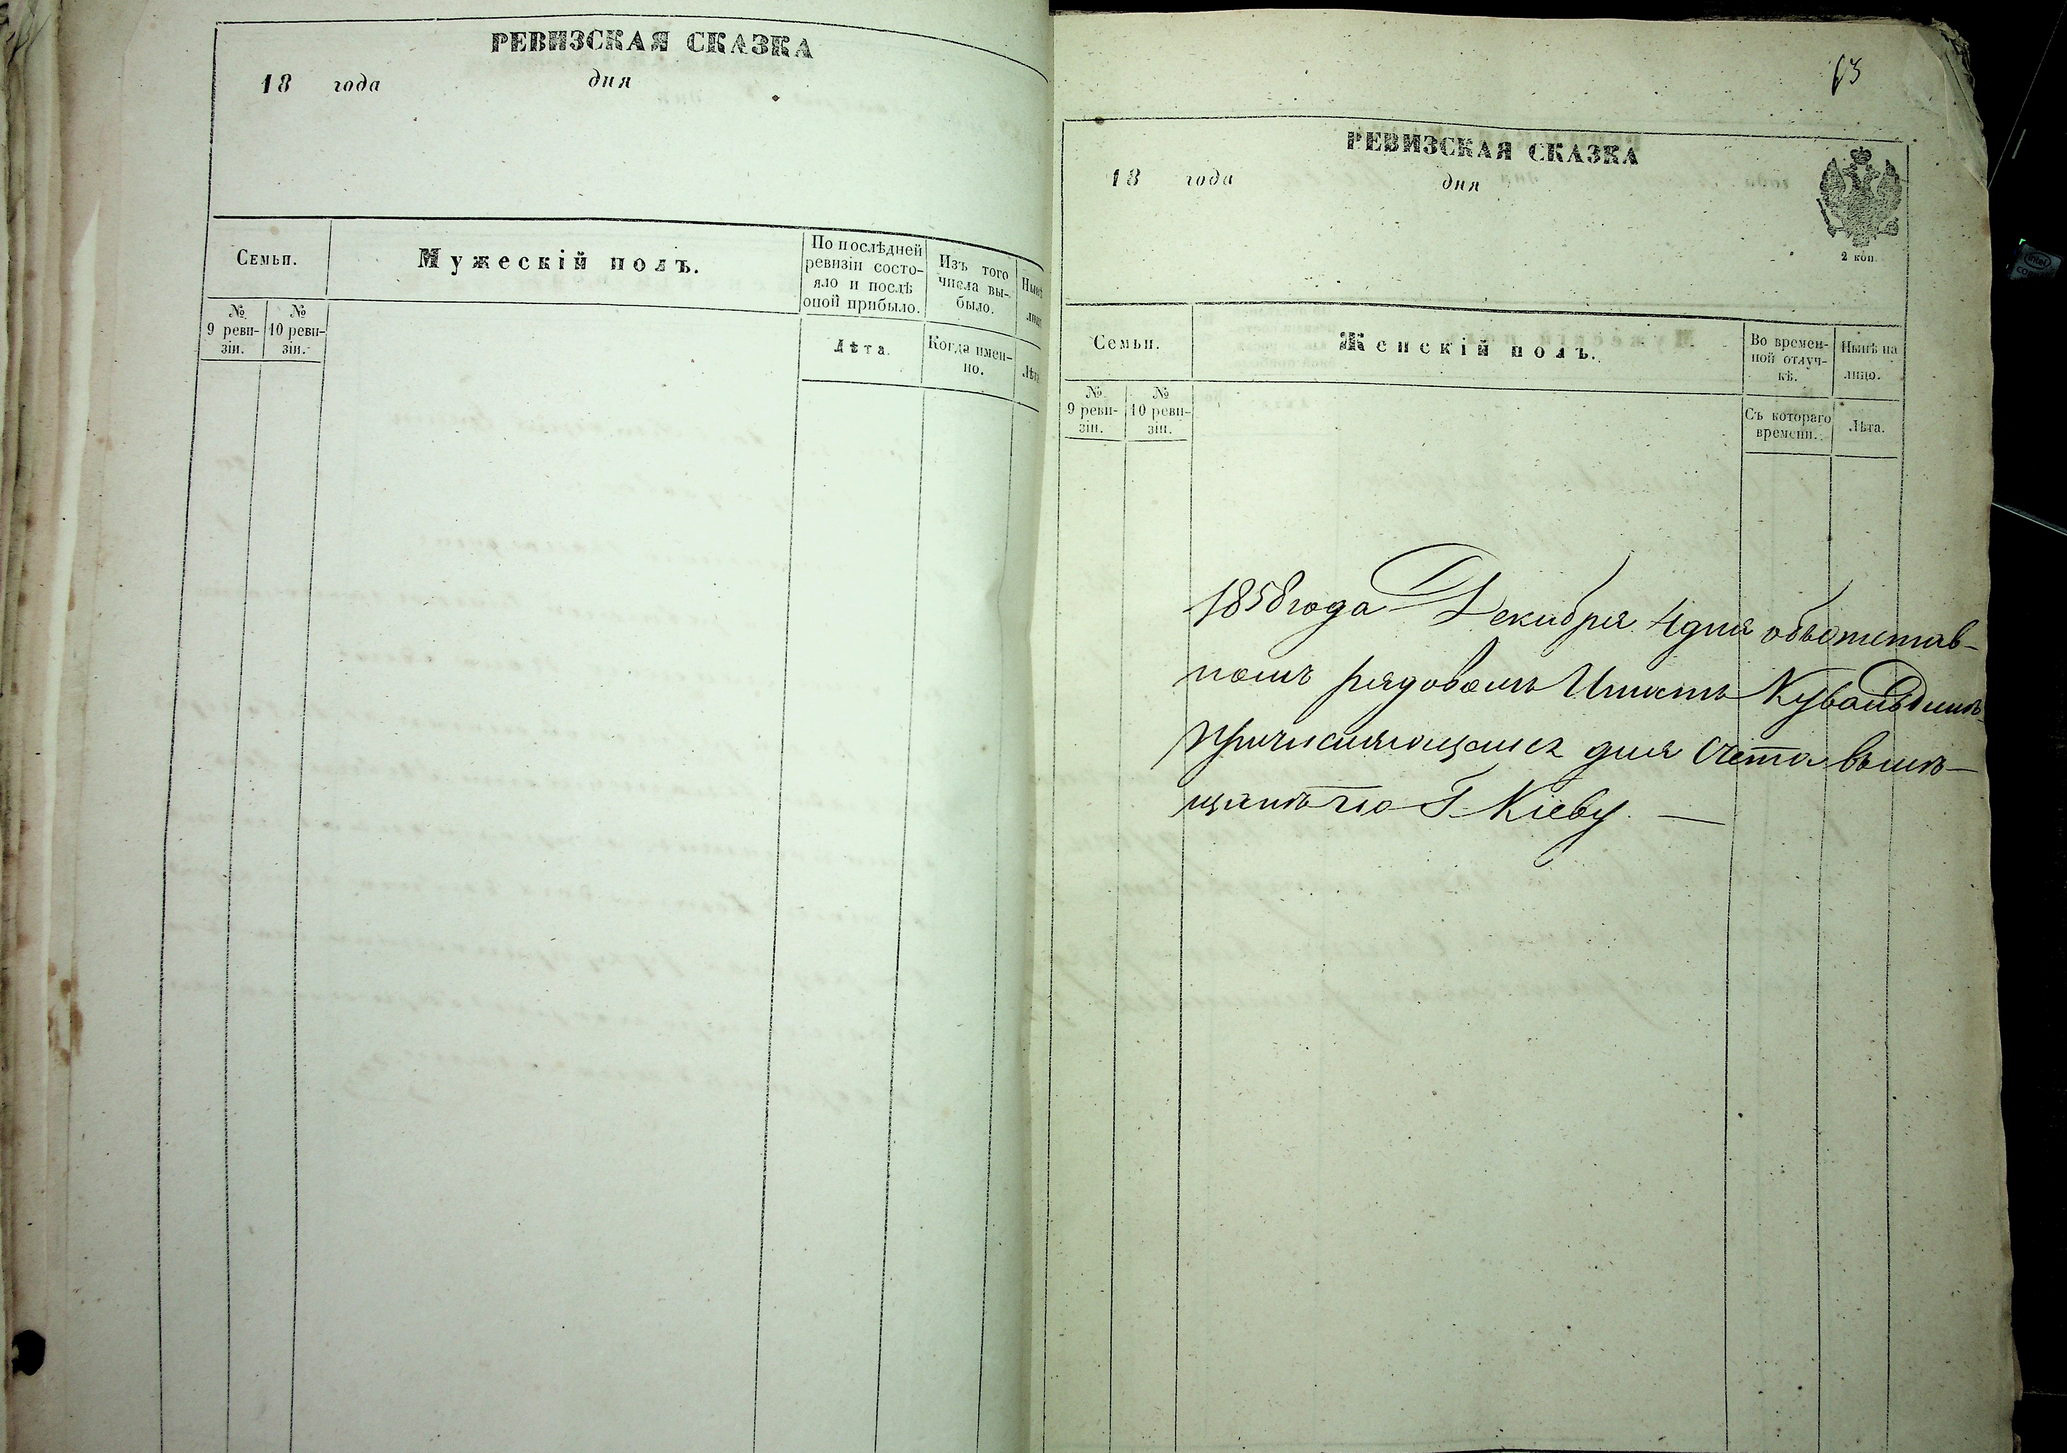 РЕВИЗСКАЯ СКАЗКА
18 года дня
Семьи.
Мужескій полъ.
По послѣдней
ревизіи состо-
яло и послѣ
оной прибыло.
Изъ того
числа вы-
было.
№
9 реви-
зіи.
№
10 реви-
зіи.
Лѣта.
Когда имен-
но.
63
РЕВИЗСКАЯ СКАЗКА
18 года дня
2 коп.
Семьи.
Женскій полъ.
Во времен-
ной отлуч-
кѣ.
Нынѣ на
лицо.
№
9 реви-
зіи.
№
10 реви-
зіи.
Съ котораго
времени.
Лѣта.
1858 года Декабря 4 дня объ отстав-
номъ рядовомъ
причисляющамся для счета въ мѣ-
щанѣ по Г Кіеву.